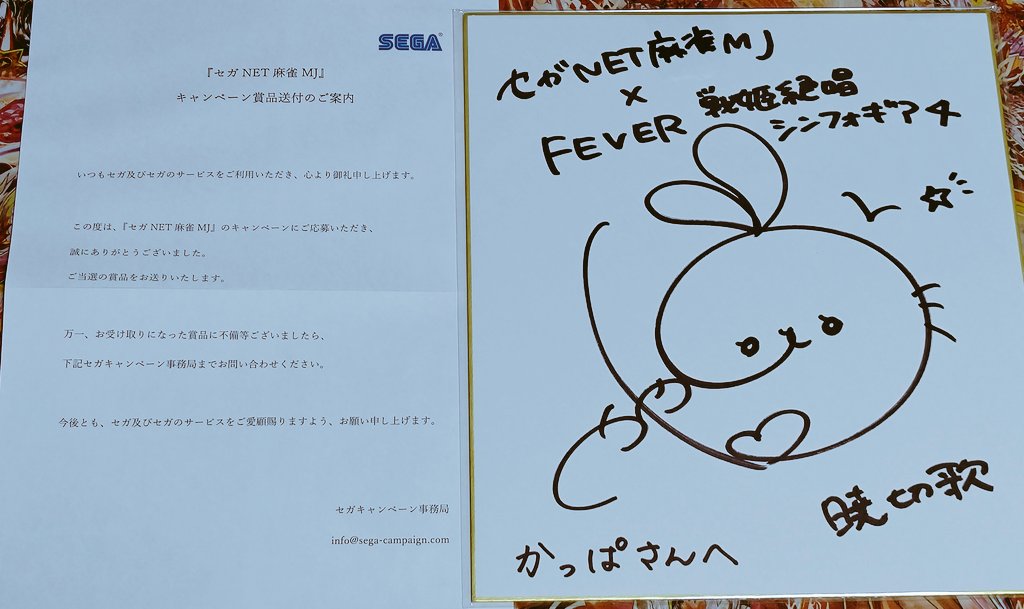 SEGA
『セガ NET 麻雀 MJ』
キャンペーン賞品送付のご案内
いつもセガ及びセガのサービスをご利用いただき、心より御礼申し上げます。
この度は、『セガ NET 麻雀 MJ』のキャンペーンにご応募いただき、
誠にありがとうございました。
ご当選の賞品をお送りいたします。
万一、お受け取りになった賞品に不備等ございましたら、
下記セガキャンペーン事務局までお問い合わせください。
今後とも、セガ及びセガのサービスをご愛顧賜りますよう、お願い申し上げます。
セガキャンペーン事務局
info@sega-campaign.com
セガNET麻雀MJ
×
FEVER 戦姫絶唱
シンフォギア4
暁切歌
かっぱさんへ